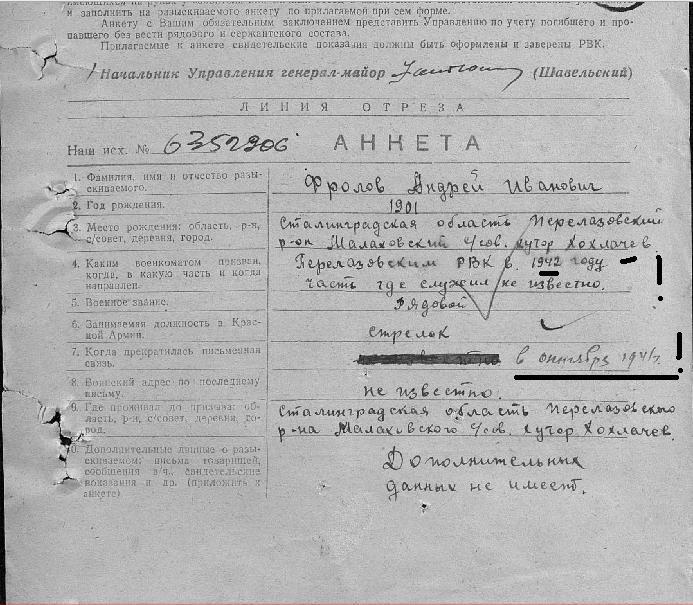 и заполнить на разыскиваемого анкету по прилагаемой при сем форме.
Анкету с Вашим обязательным заключением представить Управлению по учету погибшего и про-
павшего без вести рядового и сержантского состава.
Прилагаемые к анкете свидетельские показания должны быть оформлены и заверены РВК.
Начальник Управления генерал-майор (Шавельский)
ЛИНИЯ ОТРЕЗА
Наш исх. № 6352906 АНКЕТА
1. Фамилия, имя и отчество разы-
скиваемого.
Фролов Андрей Иванович
2. Год рождения.
1901
3. Место рождения: область, р-н,
с/совет, деревня, город.
Сталинградская область Перелазовский
р-он Малаховский с/сов. хутор Хохлачев.
4. Каким военкоматом призван,
когда, в какую часть и когда
направлен.
Перелазовским РВК в 1942 году
часть где служил не известно.
5. Военное звание.
Рядовой
6. Занимаемая должность в Крас-
ной Армии.
стрелок
7. Когда прекратилась письменная
связь.
в октября 1941 г.
8. Воинский адрес по последнему
письму.
не известно.
9. Где проживал до призыва: об-
ласть, р-н, с/совет, деревня, го-
род.
Сталинградская область Перелазовского
р-на Малаховского с/сов. хутор Хохлачев.
0. Дополнительные данные о разы-
скиваемом: письма товарищей,
сообщения в/ч., свидетельские
показания и др. (приложить к
анкете)
Дополнительных
данных не имеет.